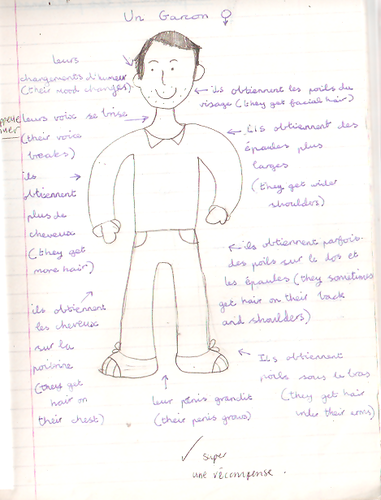 Un Garcon
leurs
changements d'humeur
(their mood changes)
ils obtiennent les poils du
visage (they get facial hair)
leurs voix se brise
(their voice
breaks)
ils obtiennent des
épaules plus
larges
(they get wider
shoulders)
ils
obtiennent
plus de
cheveux
(they get
more hair)
ils obtiennent parfois
des poils sur le dos et
les épaules (they sometimes
get hair on their back
and shoulders)
ils obtiennent
les cheveux
sur la
poitrine
(they get
hair on
their chest)
leur penis grandit
(their penis grows)
Ils obtiennent
poils sous le bras
(they get hair
under their arms)
super
une récompense.